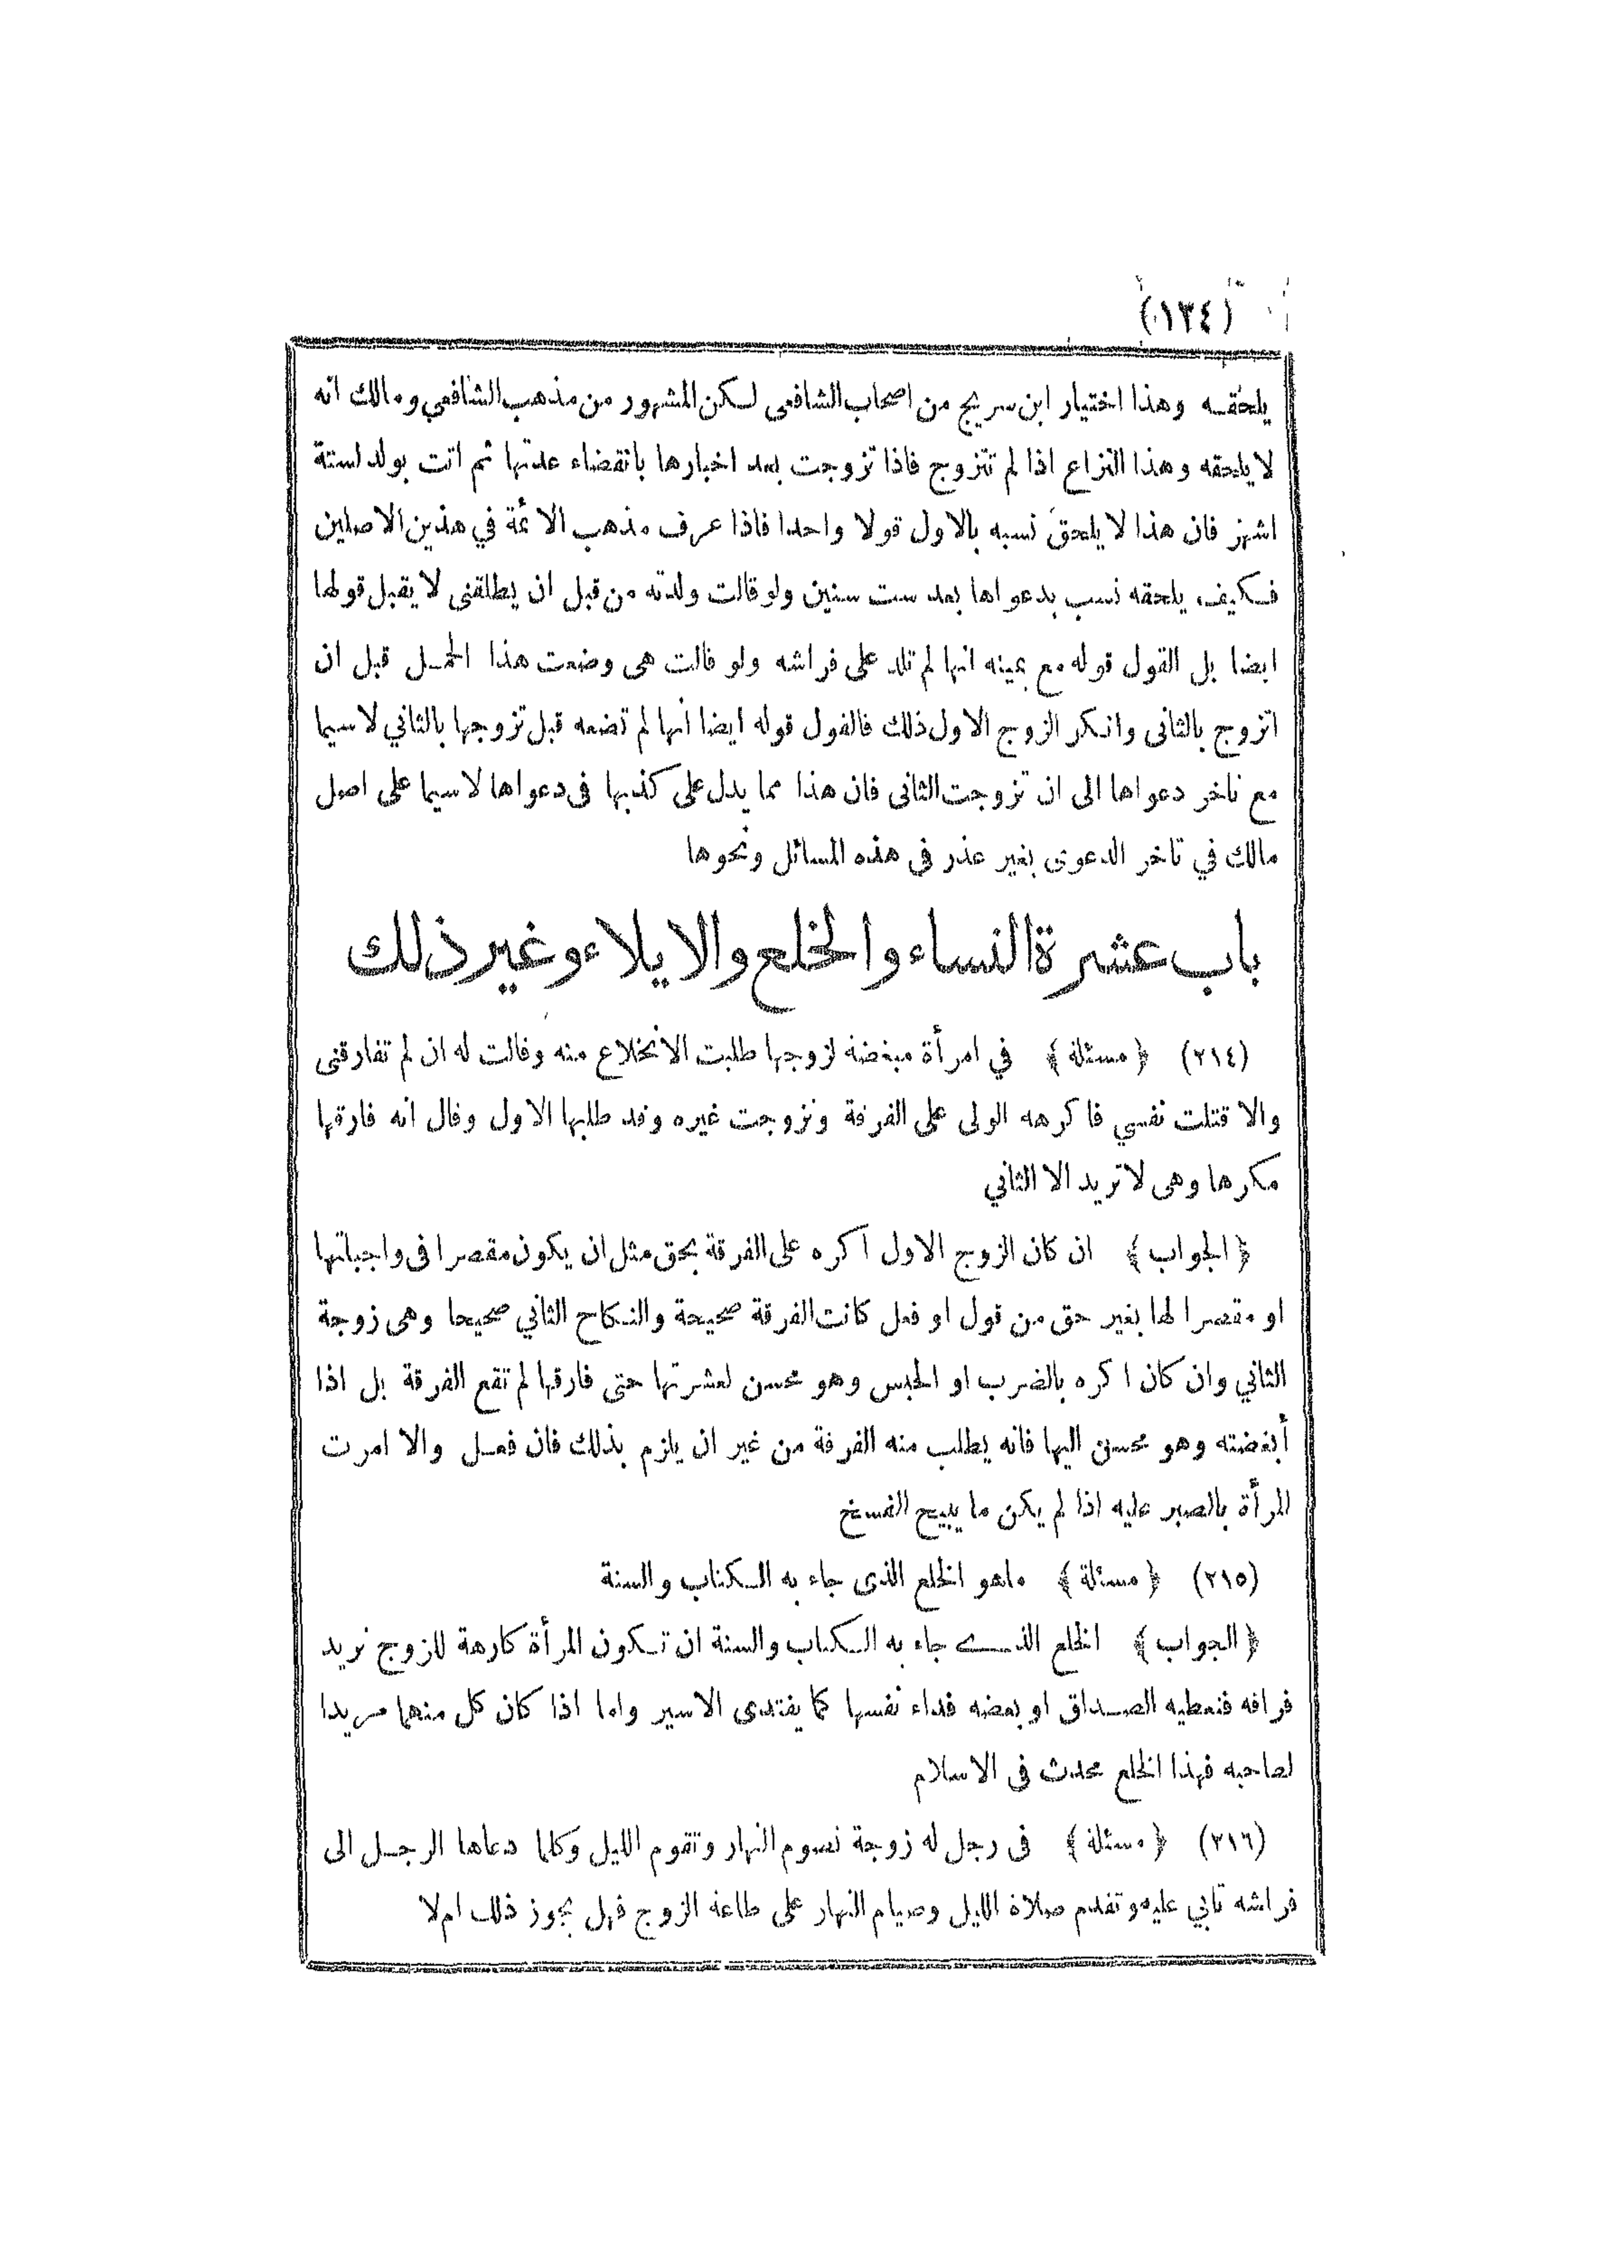 (١٣٤)
يلحقه وهذا اختيار ابن سريج من اصحاب الشافعي لكن المشهور من مذهب الشافعي ومالك انه
لا يلحقه وهذا النزاع اذا لم تتزوج فاذا تزوجت بعد اخبارها بانقضاء عدتها ثم اتت بولد لستة
اشهر فان هذا لا يلحق نسبه بالاول قولا واحدا فاذا عرف مذهب الائمة في هذين الاصلين
فكيف يلحقه نسب بدعواها بعد ست سنين ولو قالت ولدته من قبل ان يطلقنى لا يقبل قولها
ايضا بل القول قوله مع يمينه انها لم تلد على فراشه ولو قالت هى وضعت هذا الحمل قبل ان
اتزوج بالثانى وانكر الزوج الاول ذلك فالقول قوله ايضا أنها لم تضعه قبل تزوجها بالثاني لا سيما
مع تاخر دعواها الى ان تزوجت الثانى فان هذا مما يدل على كذبها فى دعواها لا سيما على اصل
مالك في تاخر الدعوى بغير عذر فى هذه المسائل ونحوها
باب عشرة النساء والخلع والايلاء وغير ذلك
(٢١٤) ﴿مسئلة﴾ في امرأة مبغضة لزوجها طلبت الانخلاع منه وقالت له ان لم تفارقنى
والا قتلت نفسي فاكرهه الولى على الفرقة وتزوجت غيره وقد طلبها الاول وقال انه فارقها
مكرها وهى لا تريد الا الثاني
﴿الجواب﴾ ان كان الزوج الاول اكره على الفرقة بحق مثل ان يكون مقصرا فى واجباتها
او مقصرا لها بغير حق من قول او فعل كانت الفرقة صحيحة والنكاح الثاني صحيحا وهى زوجة
الثاني وان كان اكره بالضرب او الحبس وهو محسن لعشرتها حتى فارقها لم تقع الفرقة بل اذا
أبغضته وهو محسن اليها فانه يطلب منه الفرقة من غير ان يلزم بذلك فان فعل والا امرت
المرأة بالصبر عليه اذا لم يكن ما يبيح الفسخ
(٢١٥) ﴿مسئلة﴾ ماهو الخلع الذى جاء به الكتاب والسنة
﴿الجواب﴾ الخلع الذي جاء به الكتاب والسنة ان تكون المرأة كارهة للزوج تريد
فراقه فتعطيه الصداق او بعضه فداء نفسها كما يفتدى الاسير واما اذا كان كل منهما مريدا
لصاحبه فهذا الخلع محدث فى الاسلام
(٢١٦) ﴿مسئلة﴾ فى رجل له زوجة تصوم النهار وتقوم الليل وكلما دعاها الرجل الى
فراشه تابي عليه وتقدم صلاة الليل وصيام النهار على طاعة الزوج فهل يجوز ذلك ام لا